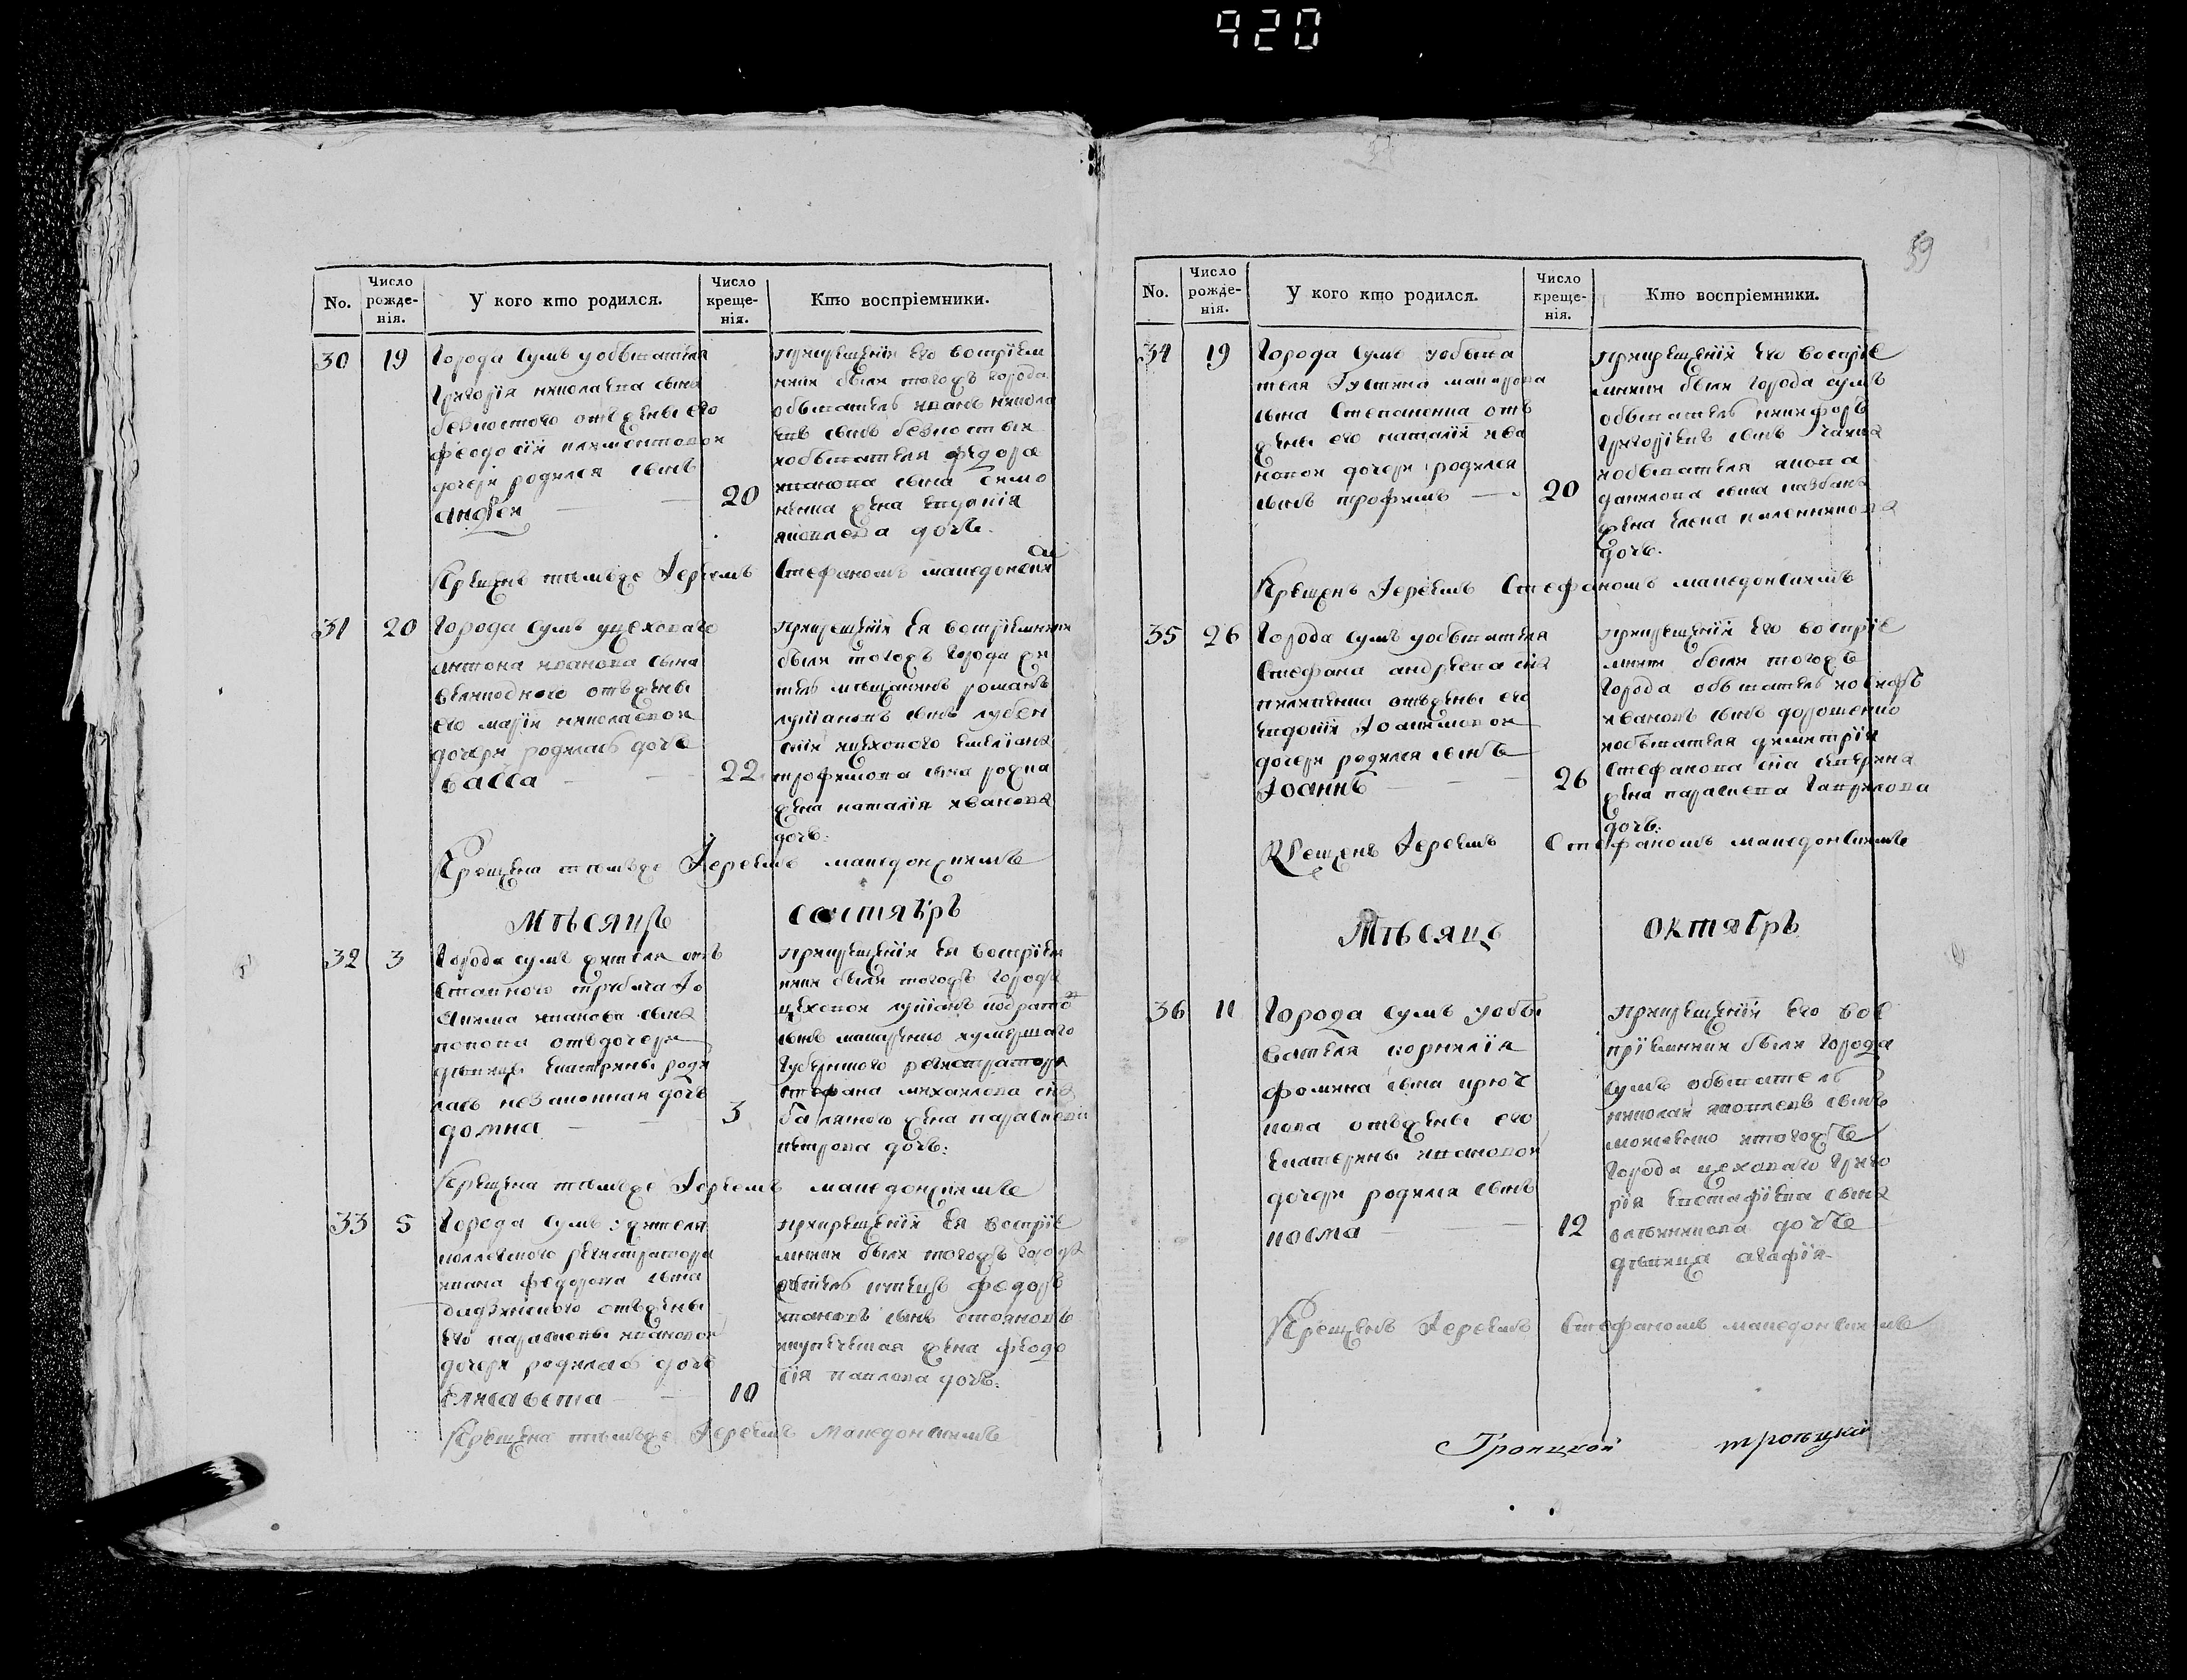 920
No.
Число рожде-нія.
У кого кто родился.
Число креще-нія.
Кто воспріемники.
30 19
Города Сумъ уобывателя
Григорія николаева сына
отъ жены его
феодосіи
дочери родился сынъ
андрей
20
прикрещеніи его воспріем
ники были тогожъ города
обыватель иванъ никола
евъ сынъ
иобывателя федора
иванова сына симо
ненка жена евдокія
яковлева дочь.
Крещенъ темъже Іереемъ Стефаномъ македонски
31 20
Города Сумъ уцеховаго
антона иванова сына
отъ жены
его маріи николаевой
дочери родилась дочь
васса
22
прикрещеніи ея воспріемники
были тогожъ города жи
тель мещанинъ романъ
лукіановъ сынъ лубен
скій ицехового емеліана
трофимова сына
жена наталія иванова
дочь:
Крещена темъже Іереемъ македонскимъ
Мѣсяцъ сентябрь
32 3
Города сумъ жителя отъ
Іо
акима иванова сына
попова отъ дочери
девицы екатерины роди
лась незаконная дочь
домна
3
прикрещеніи ея воспріем
ники были тогожъ города
цеховой лукіанъ
сынъ иумершаго
губернского регистратора
стефана михаилова сна
жена параскевія
петрова дочь:
Крещена темъже Іереемъ македонскимъ
33 5
Города Сумъ: жителя
коллежского регистратора
ивана федорова сына
отъ жены
его параскевы ивановой
дочери родилась дочь
Елисавета
10
прикрещеніи ея воспріе
мники были тогожъ города
житель купецъ федоръ
ивановъ сынъ стояновъ
икупеческая жена феодо
сія павлова дочь:
Крещена темъже Іереемъ Македонскимъ
59
No.
Число рожде-нія.
У кого кто родился.
Число креще-нія.
Кто воспріемники.
34 19
Города Сумъ уобыва
теля Іустина макарова
сына Степаненка отъ
жены его наталіи ива
новой дочери родился
сынъ трофимъ
20
прикрещеніи его воспріе
мники были города сумъ
обыватель никифоръ
григоріевъ сынъ
иобывателя якова
данилова сына
жена елена
дочь.
Крещенъ Іереемъ Стефаномъ македонскимъ
35 26
Города Сумъ уобывателя
Стефана андреева сна
отъ жены его
евдокіи Іоакимовой
дочери родился сынъ
Іоаннъ
26
прикрещеніи его воспріе
мники были тогожъ
города обыватель іосифъ
ивановъ сынъ дорошенко
иобывателя димитрія
Стефанова сна
жена параскева гаврилова
дочь:
Крещенъ Іереемъ Стефаномъ македонскимъ
Мѣсяцъ октябрь
36 11
Города Сумъ уобы
вателя корнилія
фомина сына крюч
кова отъ жены его
екатерины ивановой
дочери родился сынъ
косма
12
прикрещеніи его вос
пріемники были города
сумъ обыватель
николай яковлевъ сынъ
итогожъ
города цеховаго григо
рія евстафіева сына
дочь
девица агафія
Крещенъ Іереемъ Стефаномъ македонскимъ
Троицкой троицкій